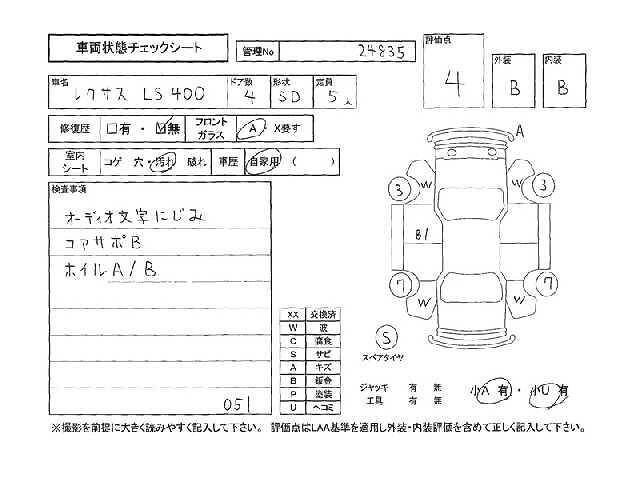 車両状態チェックシート
管理No 24835
評価点 4
外装 B
内装 B
車名 レクサス LS400
ドア数 4
形状 SD
定員 5人
修復歴 □有・☑無
フロントガラス A・X要す
室内シート コゲ 穴・汚れ 破れ
車歴 自家用 ( )
検査事項
オーディオ文字にじみ
コアサポB
ホイルA/B
051
XX 交換済
W 波
C 腐食
S サビ
A キズ
B 鈑金
P 塗装
U ヘコミ
A
3 W W 3
B1
7 W W 7
S
スペアタイヤ
ジャッキ 有 無
工具 有 無
小A 有・小U 有
※撮影を前提に大きく読みやすく記入して下さい。 評価点はLAA基準を適用し外装・内装評価を含めて正しく記入して下さい。